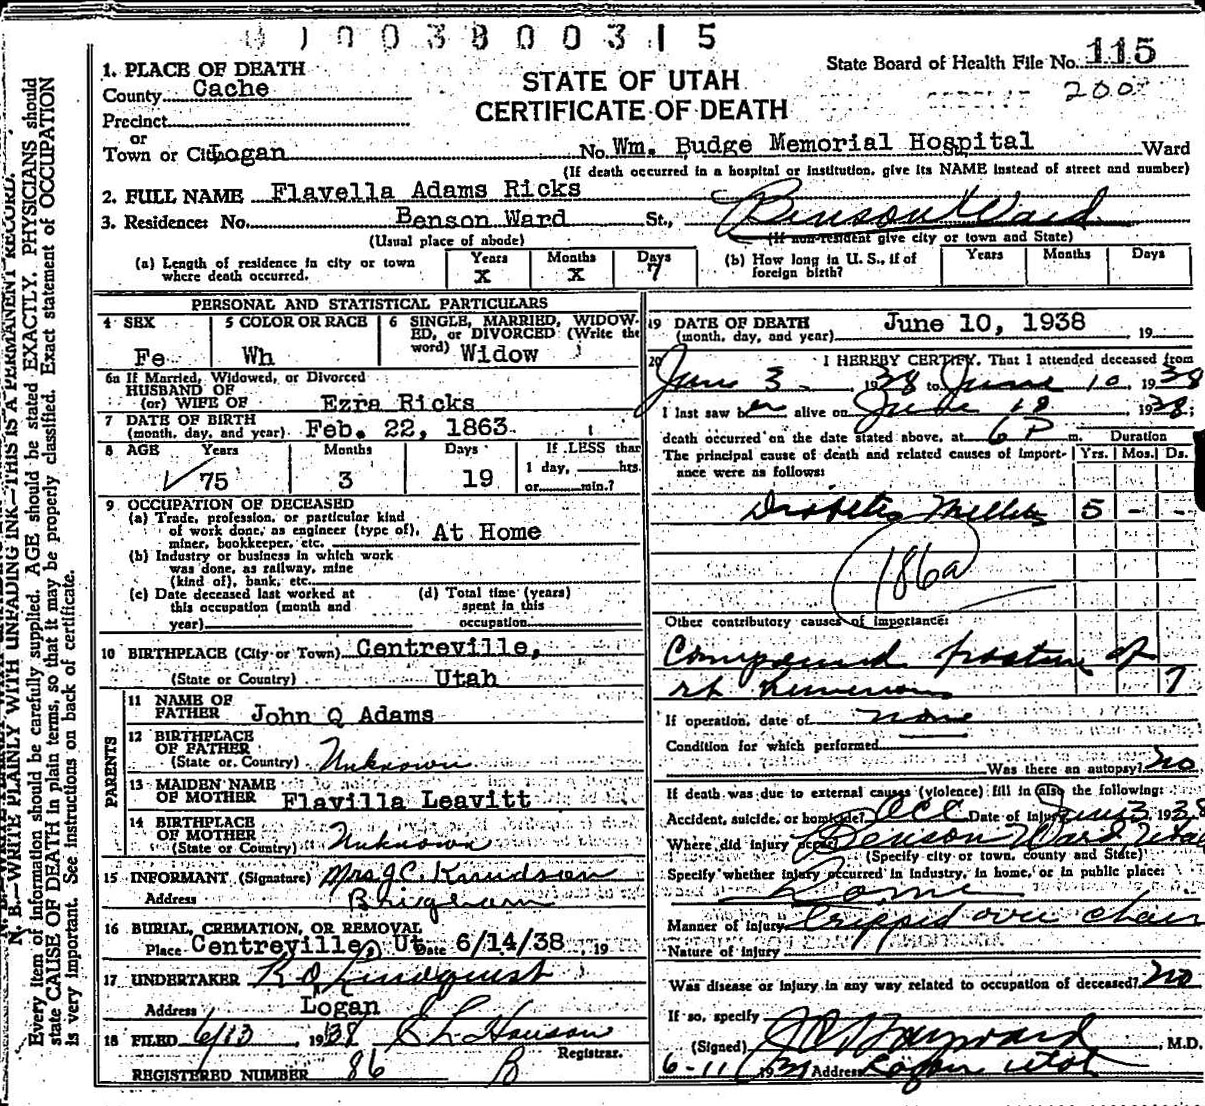 0 1 0 0 3 8 0 0 3 1 5
STATE OF UTAH
CERTIFICATE OF DEATH
State Board of Health File No. 115
200
1. PLACE OF DEATH
County Cache
Precinct
or
Town or City Logan No. Wm. Budge Memorial Hospital Ward
(If death occurred in a hospital or institution, give its NAME instead of street and number)
2. FULL NAME Flavella Adams Ricks
3. Residence: No. Benson Ward St., Benson Ward
(Usual place of abode) (If non-resident give city or town and State)
(a) Length of residence in city or town where death occurred. Years X Months X Days 7
(b) How long in U. S., if of foreign birth? Years Months Days
PERSONAL AND STATISTICAL PARTICULARS
4 SEX Fe
5 COLOR OR RACE Wh
6 SINGLE, MARRIED, WIDOWED, or DIVORCED (Write the word) Widow
6a If Married, Widowed, or Divorced
HUSBAND OF
(or) WIFE OF Ezra Ricks
7 DATE OF BIRTH
(month, day, and year) Feb. 22, 1863
8 AGE Years 75 Months 3 Days 19
If LESS than
1 day, hrs.
or min.?
9 OCCUPATION OF DECEASED
(a) Trade, profession, or particular kind
of work done, as engineer (type of),
miner, bookkeeper, etc. At Home
(b) Industry or business in which work
was done, as railway, mine
(kind of), bank, etc.
(c) Date deceased last worked at
this occupation (month and
year)
(d) Total time (years)
spent in this
occupation
10 BIRTHPLACE (City or Town) Centreville,
(State or Country) Utah
PARENTS
11 NAME OF
FATHER John Q Adams
12 BIRTHPLACE
OF FATHER
(State or Country) Unknown
13 MAIDEN NAME
OF MOTHER Flavilla Leavitt
14 BIRTHPLACE
OF MOTHER
(State or Country) Unknown
15 INFORMANT (Signature) Mrs J C Knudson
Address Brigham
16 BURIAL, CREMATION, OR REMOVAL
Place Centreville, Ut. Date 6/14/38, 19
17 UNDERTAKER Lindquist
Address Logan
18 FILED 6/13, 1938
Registrar.
REGISTERED NUMBER 86
19 DATE OF DEATH
(month, day, and year) June 10, 1938 19
20 I HEREBY CERTIFY, That I attended deceased from
June 3, 1938 to June 10, 1938
I last saw her alive on June 10 1938;
death occurred on the date stated above, at 6 P m. Duration
The principal cause of death and related causes of importance were as follows: Yrs. Mos. Ds.
Diabetis Mellitis 5 - -
186a
Other contributory causes of importance:
Compound fracture of
rt humerous 7
If operation, date of none
Condition for which performed
Was there an autopsy? no
If death was due to external causes (violence) fill in also the following:
Accident, suicide, or homicide? Acc Date of injury June 3, 1938
Where did injury occur? Benson Ward, Utah
(Specify city or town, county and State)
Specify whether injury occurred in industry, in home, or in public place:
Home
Manner of injury Tripped over chair
Nature of injury
Was disease or injury in any way related to occupation of deceased? no
If so, specify
(Signed) Hayward, M.D.
6-11 Address Logan Utah
N. B.—WRITE PLAINLY WITH UNFADING INK—THIS IS A PERMANENT RECORD.
Every item of information should be carefully supplied. AGE should be stated EXACTLY. PHYSICIANS should
state CAUSE OF DEATH in plain terms, so that it may be properly classified. Exact statement of OCCUPATION
is very important. See instructions on back of certificate.